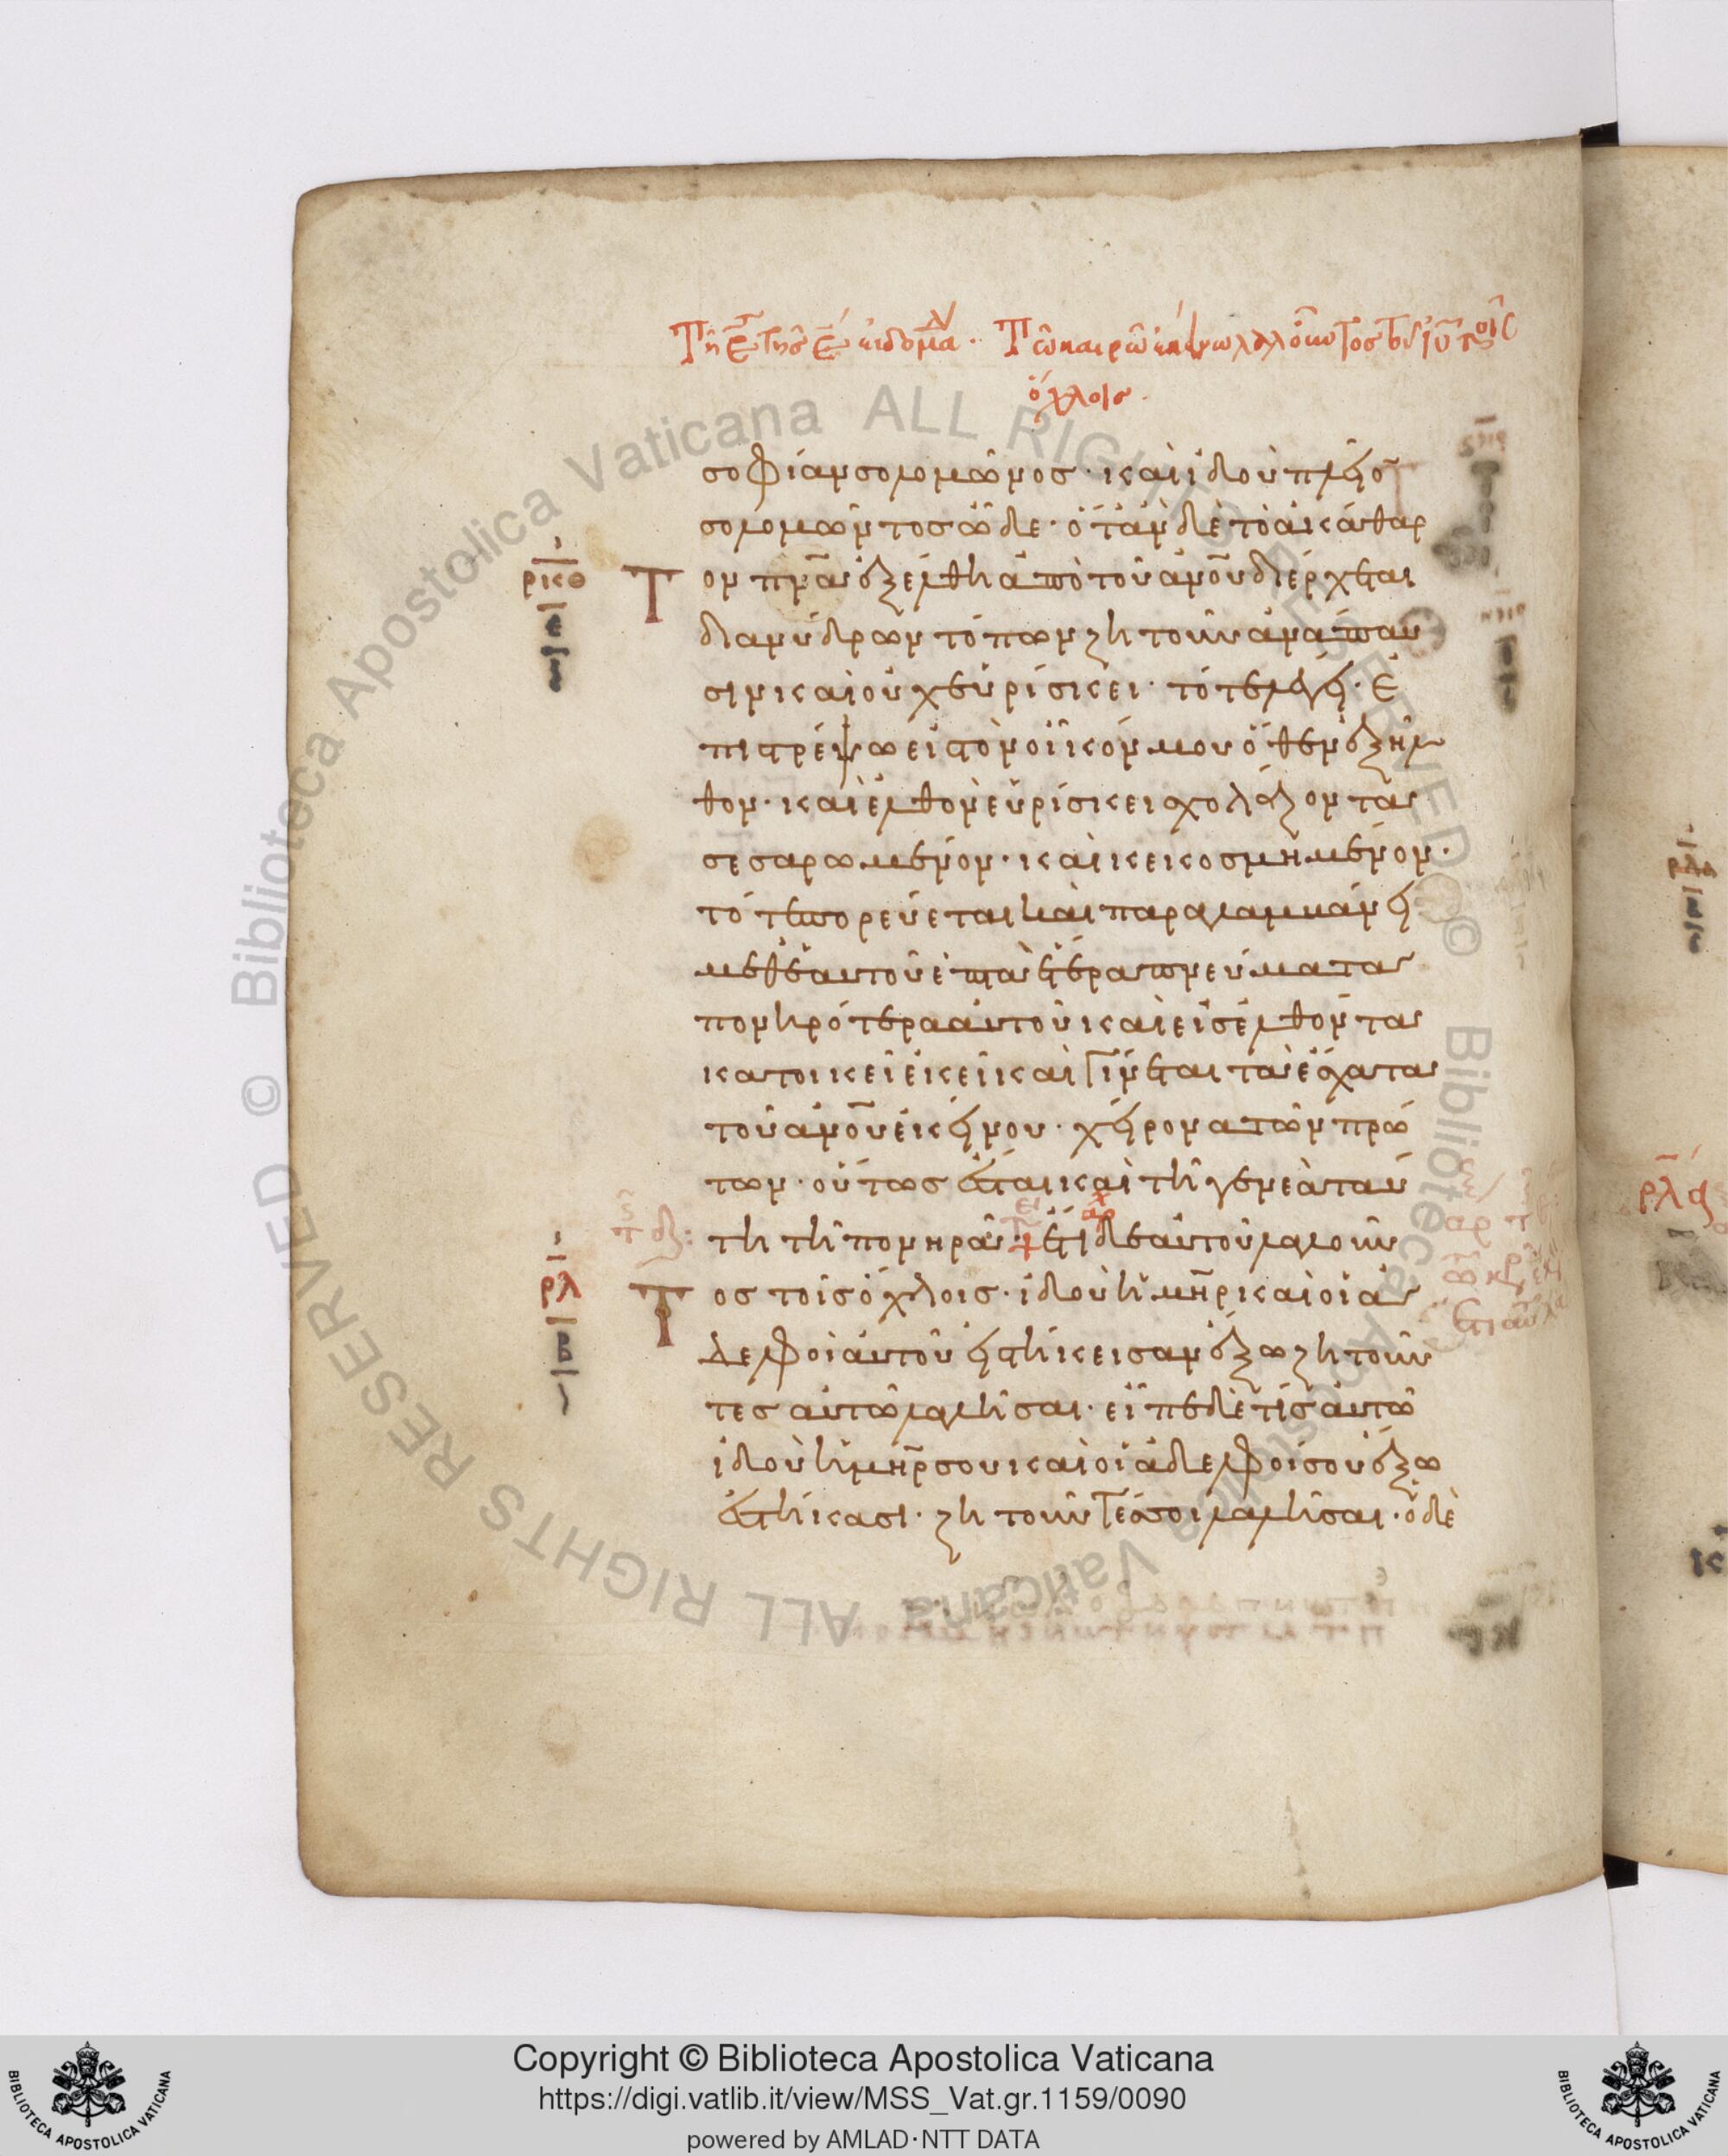 Τῆ ε τῆς ε ἑβδομάδ. Τῶ καιρῶ ἐκείνω λαλοῦντος τοῦ ἰῦ τοῖς
ὄχλοις.
σοφίαν σολομῶνος· καὶ ἰδοὺ πλεῖον
σολομῶντος ὧδε· ὅταν δὲ τὸ ἀκάθαρ
τον πνᾶ ἐξέλθη ἀπὸ τοῦ ἀνοῦ διέρχεται
δι ἀνύδρων τόπων ζητοῦν ἀνάπαυ
σιν καὶ οὐχ εὑρίσκει· τότε λέγει· ἐ
πιστρέψω εἰς τὸν οἶκόν μου ὅθεν ἐξῆλ
θον· καὶ ἐλθὸν εὑρίσκει σχολάζοντα
σεσαρωμένον· καὶ κεκοσμημένον·
τότε πορεύεται καὶ παραλαμβάνει
μεθ ἑαυτοῦ ἑπτὰ ἕτερα πνεύματα
πονηρότερα αὐτοῦ καὶ εἰσελθόντα
κατοικεῖ ἐκεῖ καὶ γίνεται τὰ ἔσχατα
τοῦ ἀνοῦ ἐκείνου· χείρονα τῶν πρώ
των· οὕτως ἔσται καὶ τῆ γενεὰ ταύ
τη τῆ πονηρᾶ· ἔτι δὲ αὐτοῦ λαλοῦν
τος τοῖς ὄχλοις· ἰδοὺ ἡ μηρ καὶ οἱ ἀ
δελφοὶ αὐτοῦ εἱστήκεισαν ἔξω ζητοῦν
τες αὐτῶ λαλῆσαι· εἶπε δέ τις αὐτῶ
ἰδοὺ ἡ μηρ σου καὶ οἱ ἀδελφοί σου ἔξω
ἑστήκασι· ζητοῦντές σοι λαλῆσαι· ὁ δὲ
ρκθ
ε
ρλ
β
ρλα
Copyright © Biblioteca Apostolica Vaticana
https://digi.vatlib.it/view/MSS_Vat.gr.1159/0090
powered by AMLAD·NTT DATA
BIBLIOTECA APOSTOLICA VATICANA
BIBLIOTECA APOSTOLICA VATICANA
© Biblioteca Apostolica Vaticana ALL RIGHTS RESERVED
© Biblioteca Apostolica Vaticana ALL RIGHTS RESERVED